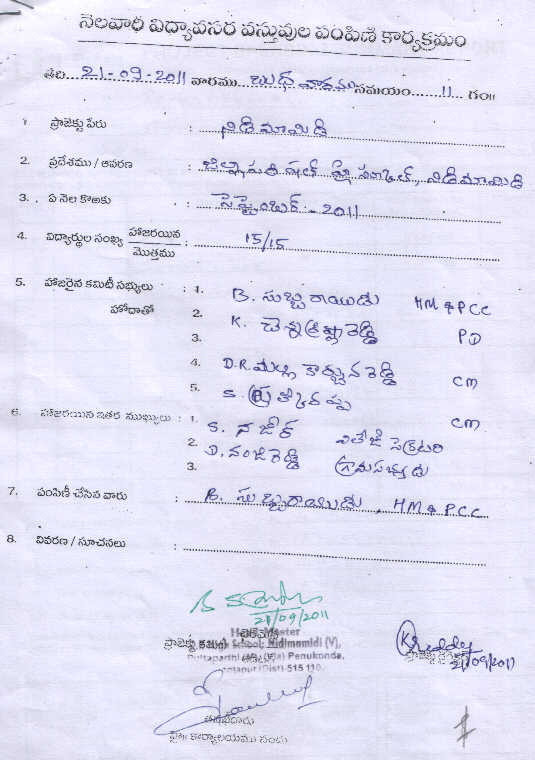 నెలవారీ విద్యావసర వస్తువుల పంపిణి కార్యక్రమం
తేది 21-09-2011 వారము బుధవారము సమయం 11 గం॥
1 ప్రాజెక్టు పేరు : నిడిమామిడి
2. ప్రదేశము / ఆవరణ : జిల్లా పరిషత్ హై స్కూల్, నిడిమామిడి
3. ఏ నెల కొఱకు : సెప్టెంబర్ - 2011
4. విద్యార్థుల సంఖ్య హాజరయిన / మొత్తము : 15/15
5. హాజరైన కమిటీ సభ్యులు హోదాతో : 1. B. సుబ్బరాయుడు HM & PCC
2. K. చెన్నకృష్ణారెడ్డి PD
3.
4. D.R. మల్లికార్జునరెడ్డి CM
5. S. CM
6. హాజరయిన ఇతర ముఖ్యులు : 1. S. నజీర్ విలేజి సెక్రటరి
2. D. నంజిరెడ్డి గ్రామసభ్యుడు
3.
7. పంపిణీ చేసిన వారు : B. సుబ్బరాయుడు, HM & PCC
8. వివరణ / సూచనలు :
21/09/2011
Head Master
ప్రాజెక్టు కమిటీ
High School, Nidimamidi (V),
Puttaparthi Penukonda,
Anantapur (Dist)-515 110.
K Reddy
21/09/2011